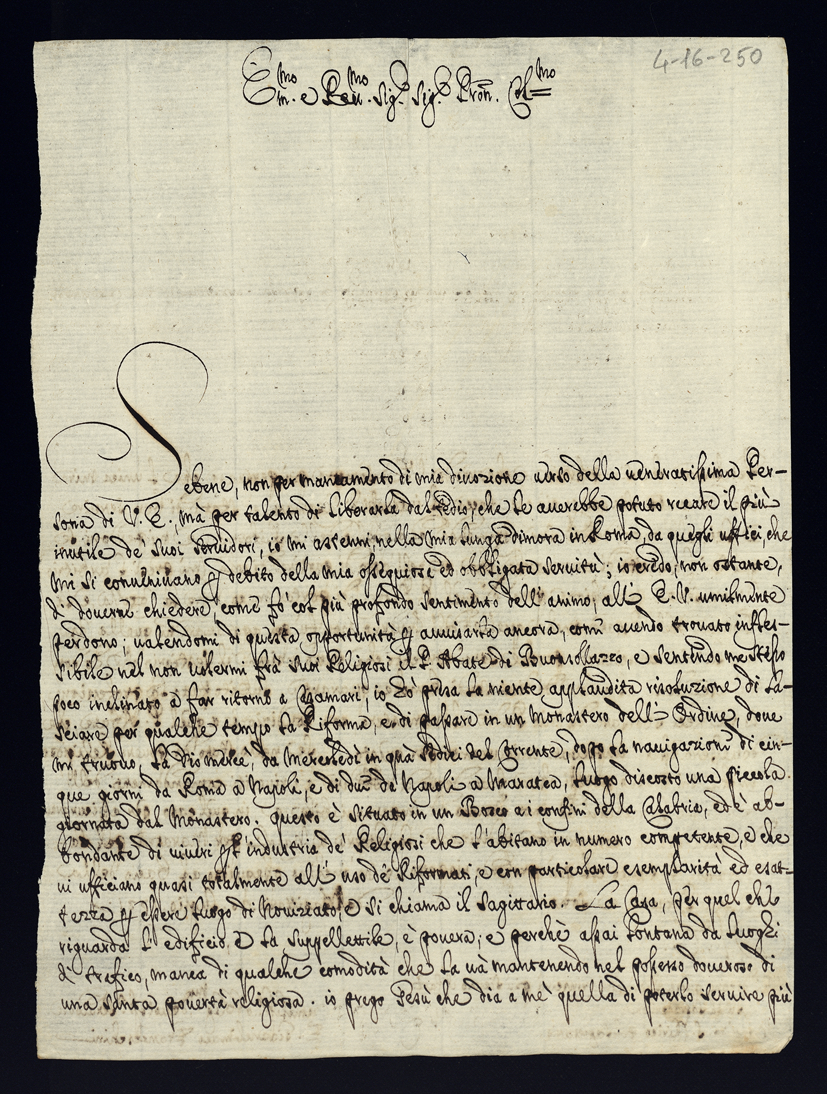 4-16-250
Em.mo e Reu.mo Sig.r Sig.r Pron. Col.mo
Sebene, non per mancamento di mia diuozione uerso della ueneratissima Per-
sona di V. E., mà per talento di liberarla dal tedio, che le auerebbe potuto recare il più
inutile de' suoi seruidori, io mi astenni, nella mia lunga dimora in Roma, da quegli uffici, che
mi si conueniuano p debito della mia ossequiosa ed obbligata seruitù; io credo, non ostante,
di douerne chiedere, come fò col più profondo sentimento dell'animo, all' E. V. umilmente
perdono; ualendomi di questa opportunità p auuisarla ancora, come auendo trouato infles-
sibile nel non uolermi frà suoi Religiosi il P. Abate di Buonsollazzo, e sentendo me stesso
poco inclinato à far ritorno a Casamari, io hò presa la niente applaudita risoluzione di la-
sciare per qualche tempo la Riforma, e di passare in un Monastero dell' Ordine, doue
mi truouo, la dio mercè, da Mercoledì in quà sedici del corrente, dopo la nauigazione di cin-
que giorni da Roma a Napoli, e di due da Napoli a Maratea, luogo discosto una piccola
giornata dal Monastero. questo è situato in un Bosco a i confini della Calabria, ed è ab-
bondante di uiueri p l'industria de' Religiosi che l'abitano in numero competente, e che
ui ufficiano quasi totalmente all' uso de' Riformati, e con particolare esemplarità ed esat-
tezza p essere luogo di Nouiziato, e si chiama il Sagittario. La Casa, per quel che
riguarda l' edificio e la suppellettile, è pouera; e perchè assai lontana da luoghi
di trafico, manca di qualche comodità che la uà mantenendo nel possesso doueroso di
una santa pouertà religiosa. io prego Gesù che dia a mè quella di poterlo seruire più